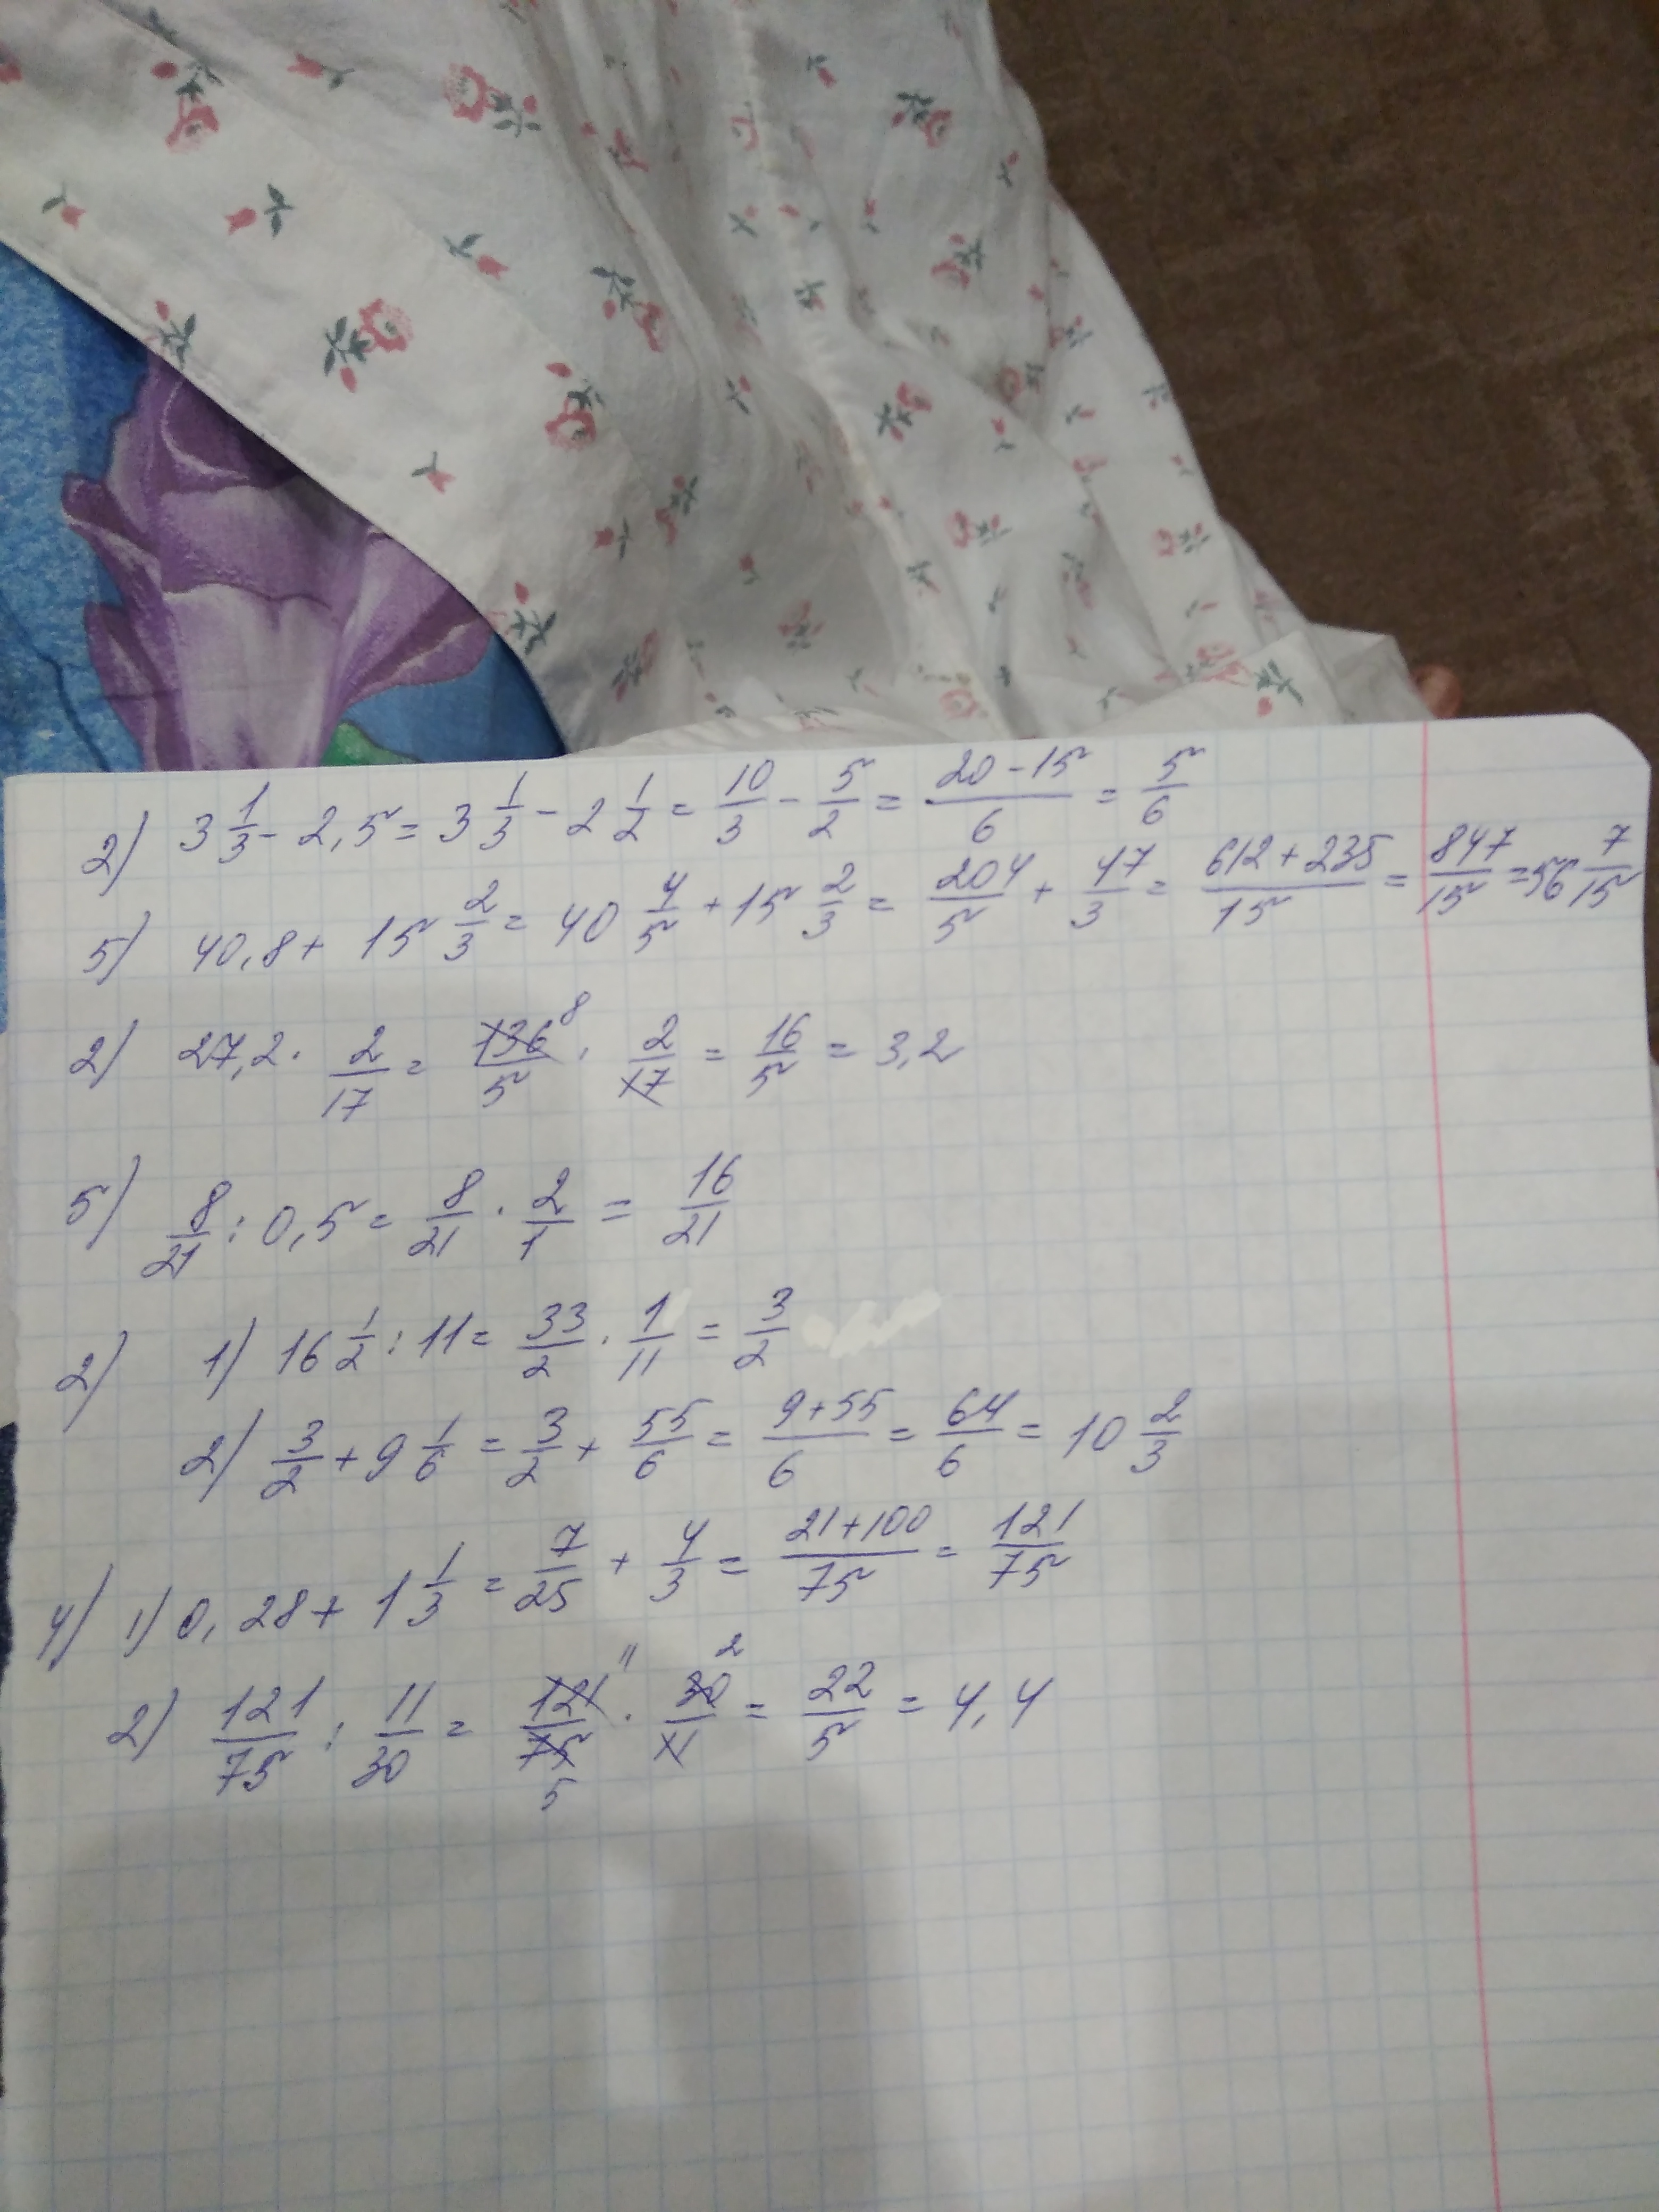 2) 3 1/3 - 2,5 = 3 1/3 - 2 1/2 = 10/3 - 5/2 = (20-15)/6 = 5/6
5) 40,8 + 15 2/3 = 40 4/5 + 15 2/3 = 204/5 + 47/3 = (612+235)/15 = 847/15 = 56 7/15
2) 27,2 · 2/17 = 136/5 8 · 2/17 = 16/5 = 3,2
5) 8/21 : 0,5 = 8/21 · 2/1 = 16/21
2) 1) 16 1/2 : 11 = 33/2 · 1/11 = 3/2
2) 3/2 + 9 1/6 = 3/2 + 55/6 = (9+55)/6 = 64/6 = 10 2/3
4) 1) 0,28 + 1 1/3 = 7/25 + 4/3 = (21+100)/75 = 121/75
2) 121/75 : 11/30 = 121/75 11 5 · 30/11 2 = 22/5 = 4,4